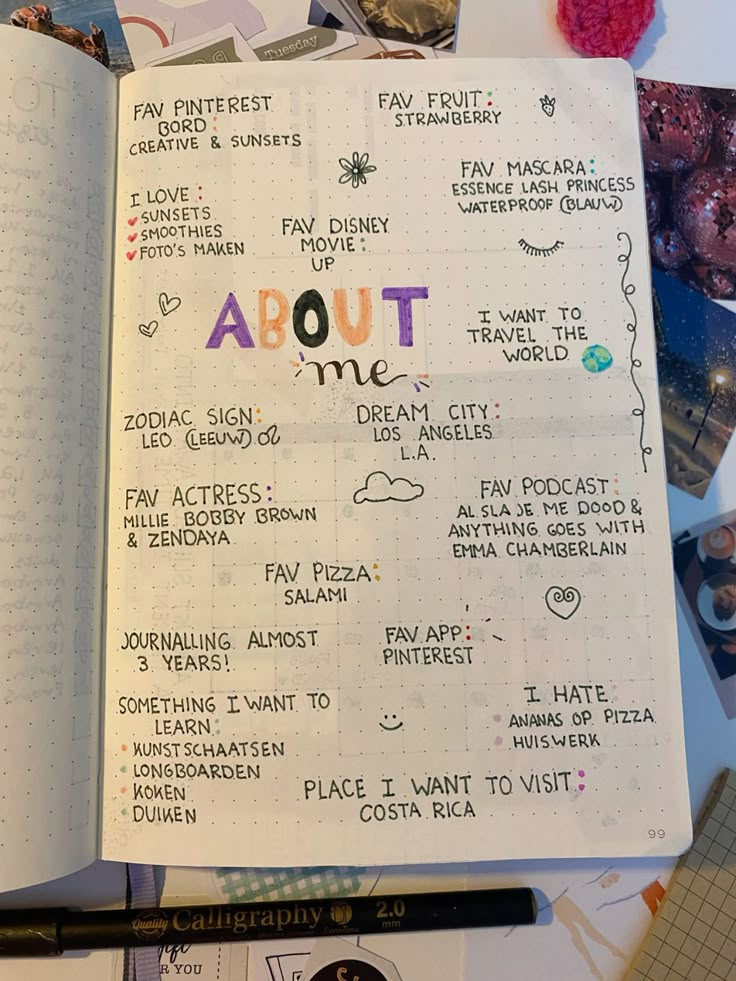 Tuesday
FAV PINTEREST
BORD:
CREATIVE & SUNSETS
FAV FRUIT:
STRAWBERRY
FAV MASCARA:
ESSENCE LASH PRINCESS
WATERPROOF (BLAUW)
I LOVE:
SUNSETS
SMOOTHIES
FOTO'S MAKEN
FAV DISNEY
MOVIE:
UP
ABOUT
me
I WANT TO
TRAVEL THE
WORLD
ZODIAC SIGN:
LEO (LEEUW) ♌
DREAM CITY:
LOS ANGELES
L.A.
FAV ACTRESS:
MILLIE BOBBY BROWN
& ZENDAYA
FAV PODCAST:
ALS LA JE ME DOOD &
ANYTHING GOES WITH
EMMA CHAMBERLAIN
FAV PIZZA:
SALAMI
JOURNALLING ALMOST
3 YEARS!
FAV APP:
PINTEREST
SOMETHING I WANT TO
LEARN:
KUNSTSCHAATSEN
LONGBOARDEN
KOKEN
DUIKEN
I HATE:
ANANAS OP PIZZA
HUISWERK
PLACE I WANT TO VISIT:
COSTA RICA
99
Quality Calligraphy 2.0
mm
R YOU